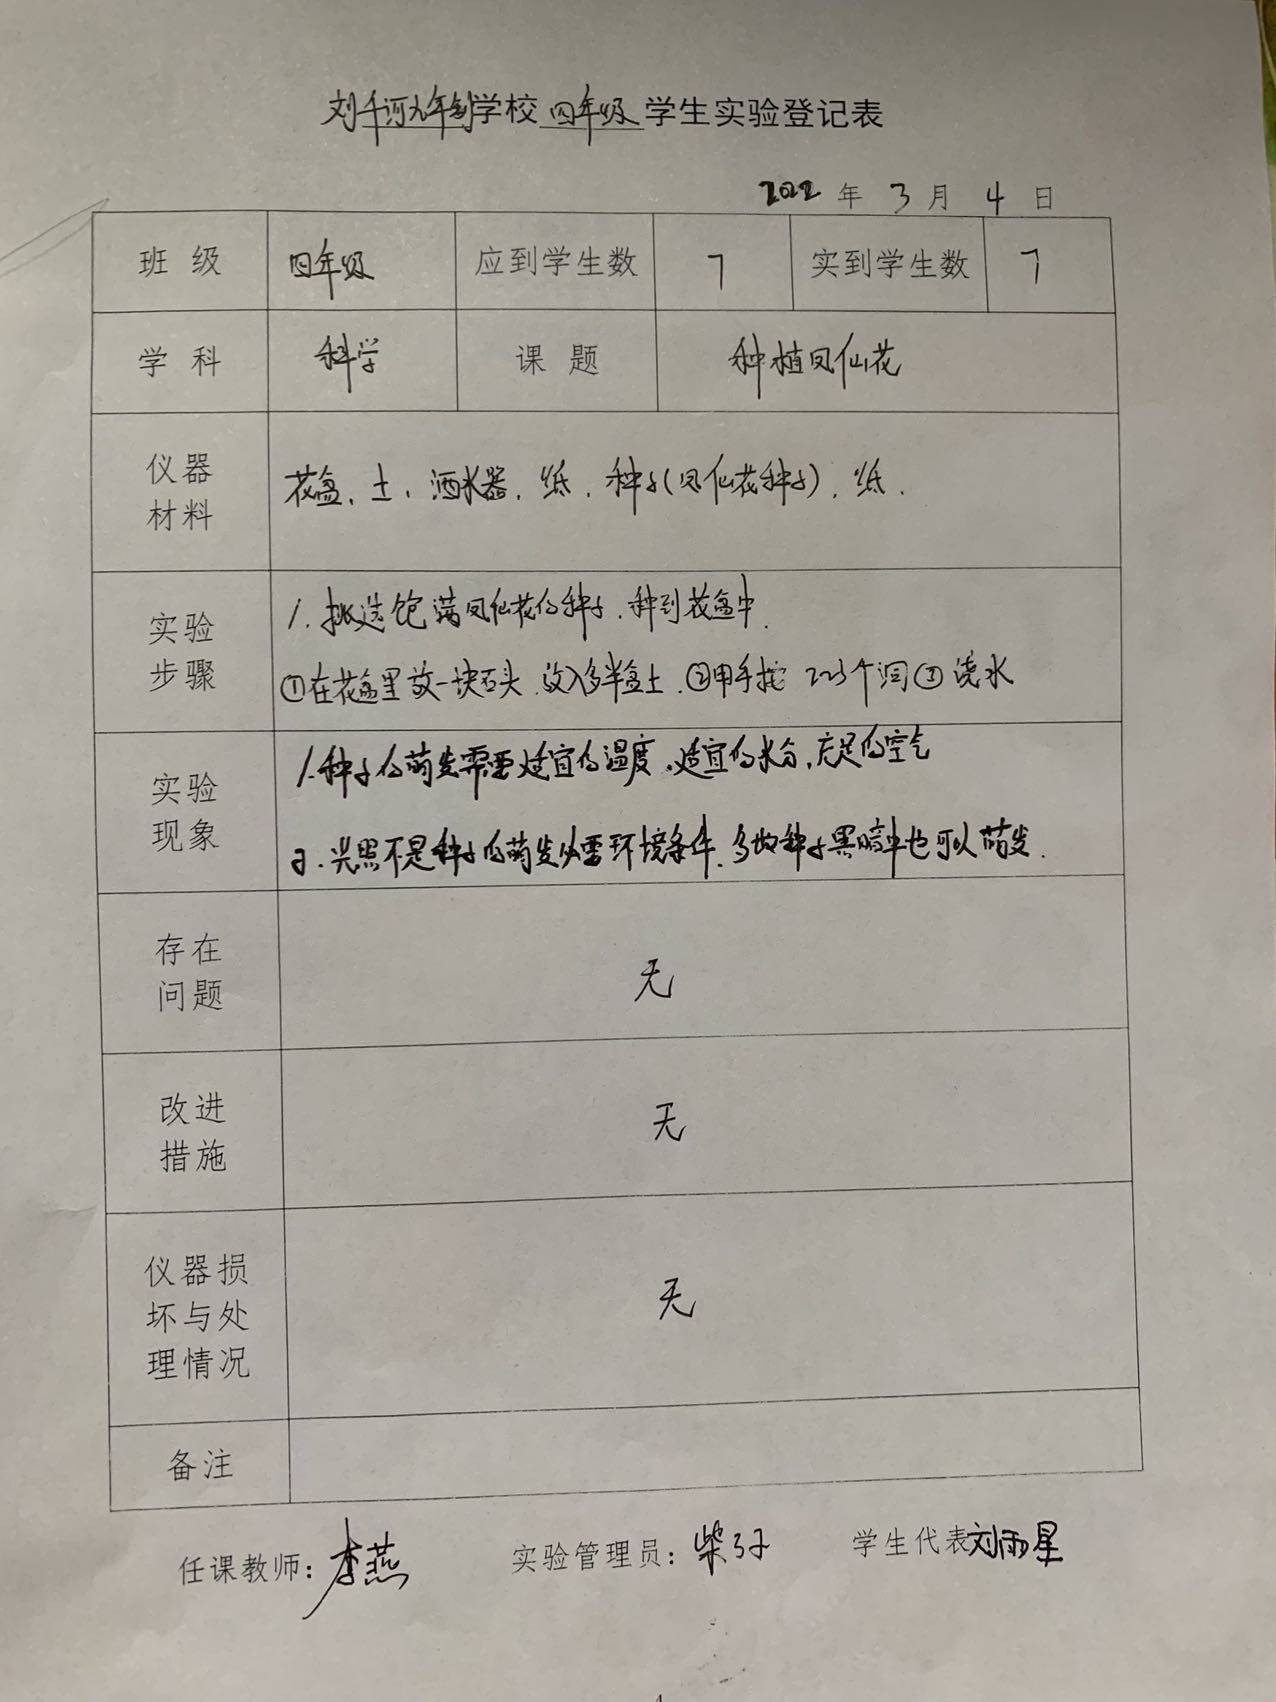 刘千河九年制学校四年级学生实验登记表
2022年3月4日
班级 四年级 应到学生数 7 实到学生数 7
学科 科学 课题 种植凤仙花
仪器
材料
花盆、土、洒水器、纸、种子(凤仙花种子)、纸.
实验
步骤
1.挑选饱满凤仙花的种子.种到花盆中.
①在花盆里放一块石头.放入多半盆土.②用手挖 2-3个洞③浇水
实验
现象
1.种子的萌发需要适宜的温度.适宜的水分,充足的空气
2.光照不是种子的萌发必需环境条件.多数种子黑暗中也可以萌发.
存在
问题
无
改进
措施
无
仪器损
坏与处
理情况
无
备注
任课教师:李燕 实验管理员:柴 学生代表刘雨星